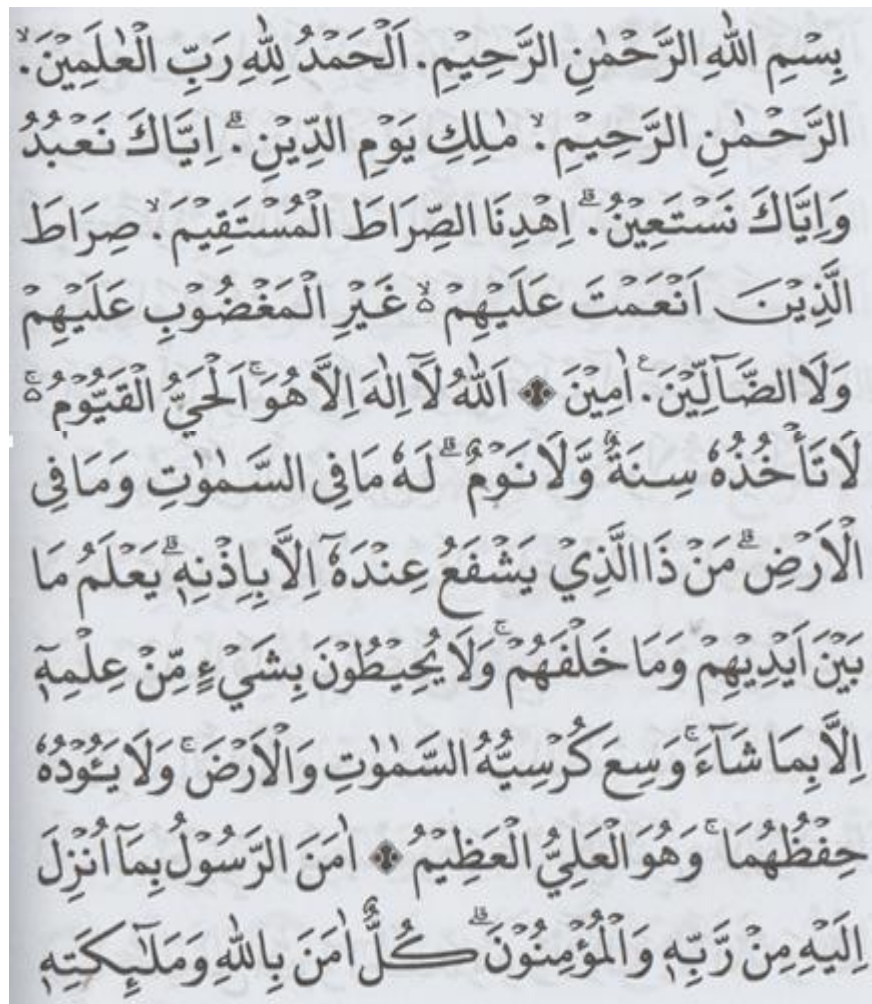 بِسْمِ اللهِ الرَّحْمٰنِ الرَّحِيْمِ. اَلْحَمْدُ لِلّٰهِ رَبِّ الْعٰلَمِيْنَۙ.
الرَّحْمٰنِ الرَّحِيْمِۙ. مٰلِكِ يَوْمِ الدِّيْنِۗ. اِيَّاكَ نَعْبُدُ
وَاِيَّاكَ نَسْتَعِيْنُۗ. اِهْدِنَا الصِّرَاطَ الْمُسْتَقِيْمَۙ. صِرَاطَ
الَّذِيْنَ اَنْعَمْتَ عَلَيْهِمْ ەۙ غَيْرِ الْمَغْضُوْبِ عَلَيْهِمْ
وَلَا الضَّآلِّيْنَۧ. اٰمِيْنَ ۞ اَللهُ لَآ اِلٰهَ اِلَّا هُوَۚ اَلْحَيُّ الْقَيُّوْمُ ەۚ
لَا تَأْخُذُهٗ سِنَةٌ وَّلَا نَوْمٌۗ لَهٗ مَا فِى السَّمٰوٰتِ وَمَا فِى
الْاَرْضِۗ مَنْ ذَا الَّذِيْ يَشْفَعُ عِنْدَهٗٓ اِلَّا بِاِذْنِهٖۗ يَعْلَمُ مَا
بَيْنَ اَيْدِيْهِمْ وَمَا خَلْفَهُمْۚ وَلَا يُحِيْطُوْنَ بِشَيْءٍ مِّنْ عِلْمِهٖٓ
اِلَّا بِمَا شَآءَۚ وَسِعَ كُرْسِيُّهُ السَّمٰوٰتِ وَالْاَرْضَۚ وَلَا يَـُٔوْدُهٗ
حِفْظُهُمَاۚ وَهُوَ الْعَلِيُّ الْعَظِيْمُ ۞ اٰمَنَ الرَّسُوْلُ بِمَآ اُنْزِلَ
اِلَيْهِ مِنْ رَّبِّهٖ وَالْمُؤْمِنُوْنَۗ كُلٌّ اٰمَنَ بِاللهِ وَمَلٰٓئِكَتِهٖ